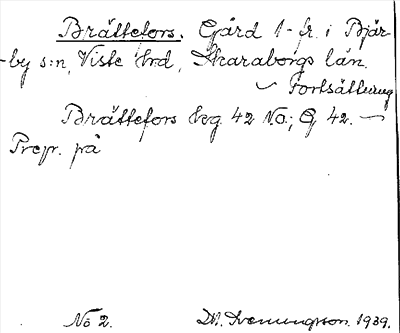 Brättefors. Gård 1-fr. i Bjär-
by s:n, Viste hrd, Skaraborgs län.
Fortsättning
Brättefors hög. 42 No.; G 42. —
Prep. på
No 2. 1939.